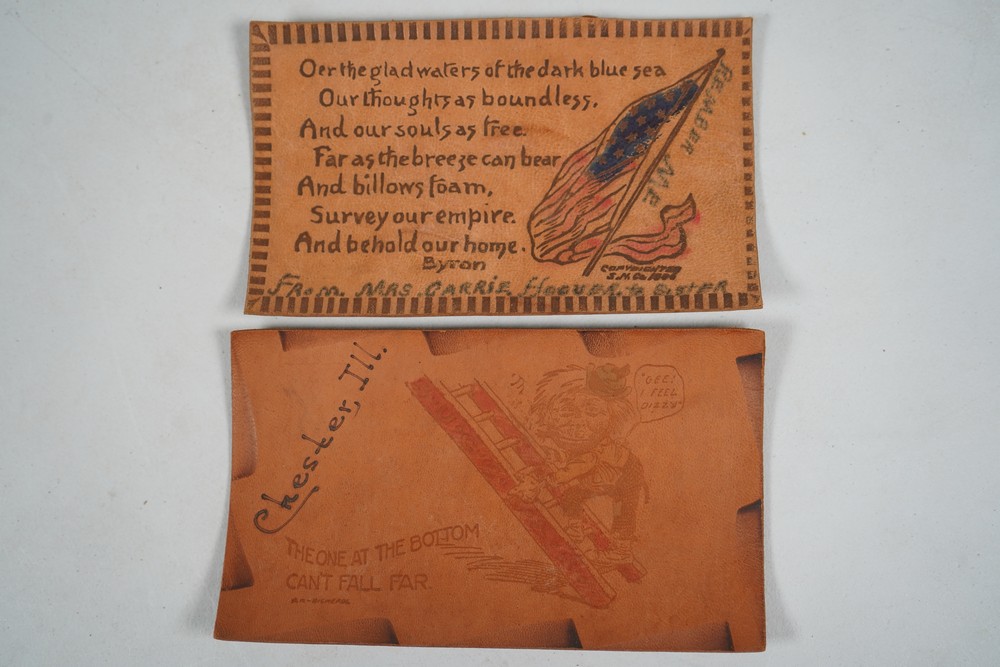 Oer the glad waters of the dark blue sea
Our thoughts as boundless,
And our souls as free.
Far as the breeze can bear
And billows foam,
Survey our empire.
And behold our home.
Byron
REMEMBER ME
COPYRIGHTED
S.H.Co.
FROM. MRS. CARRIE. HOOVER. & SISTER
Chester, Ill.
"GEE!
I FEEL
DIZZY"
THE ONE AT THE BOTTOM
CAN'T FALL FAR.